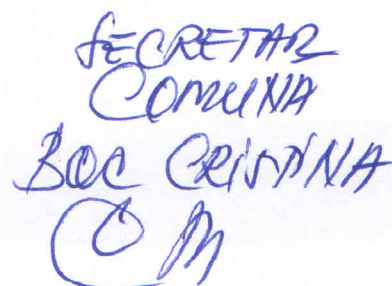 SECRETAR
COMUNA
BOC CRISTINA